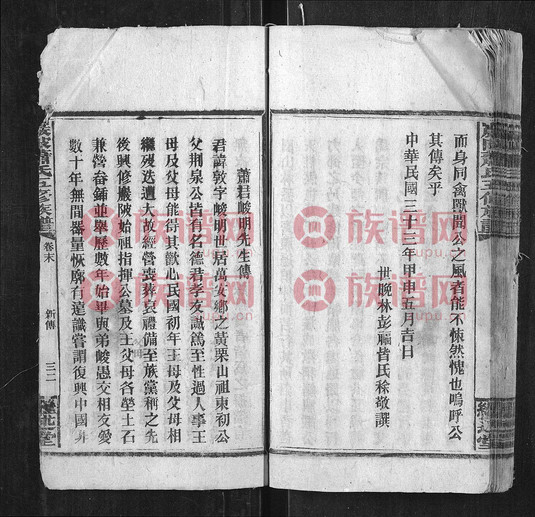 而身同禽獸聞公之風者能不悚然愧也嗚呼公
其傳矣乎
中華民國三十三年甲申五月吉日
世晚林彭福皆民稌敬譔
蕭君峻明先生傳
君諱敦宇峻明世居萬安鄉之黃栗山祖東初公
父荆泉公皆有名德君孝友識篤至性過人事王
母及父母能得其歡心民國初年王母及父母相
繼殁迭遭大故經營喪葬哀禮備至族黨稱之先
後興修巖陂始祖指揮公墓及王父母各塋土石
兼營畚鍤並舉歷數年始畢與弟峻愚交相友愛
數十年無間器量恢廓有遠識嘗謂復興中國
蕭氏五修族譜
卷末
新傳
三二
族谱网